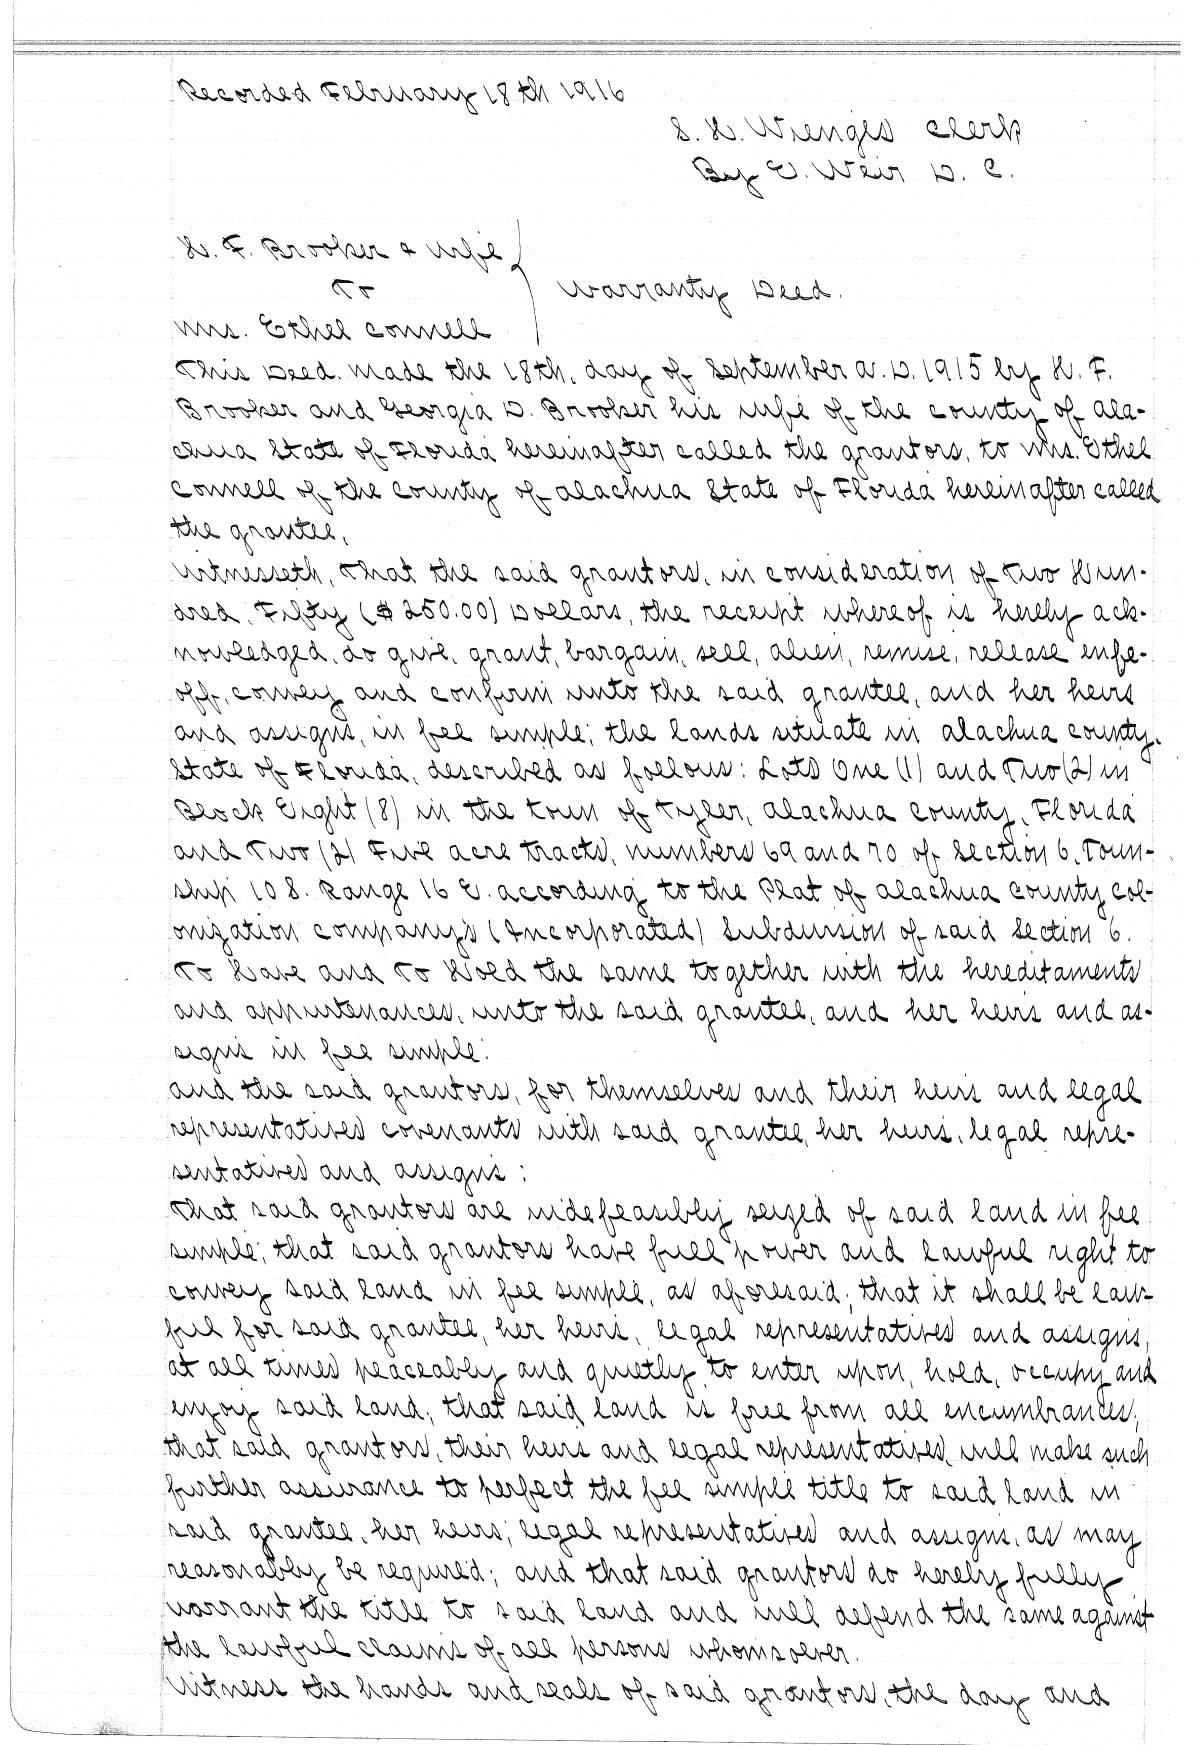 Recorded February 18th 1916
S. H. Wienges Clerk
By E. Weir D. C.
H. F. Brooker & wife
To
Warranty Deed.
Mrs. Ethel Connell
This Deed. made the 18th, day of September A. D. 1915 by H. F.
Brooker and Georgia D. Brooker his wife of the county of Ala-
chua State of Florida hereinafter called the grantors, to Mrs. Ethel
Connell of the county of Alachua State of Florida hereinafter called
the grantee,
Witnesseth, that the said grantors, in consideration of Two Hun-
dred, Fifty ($250.00) Dollars, the receipt whereof is hereby ack-
nowledged, do give, grant, bargain, sell, alien, remise, release enfe-
off, convey and confirm unto the said grantee, and her heirs
and assigns, in fee simple; the lands situate in Alachua county,
State of Florida, described as follows: Lots One (1) and Two (2) in
Block Eight (8) in the town of Tyler, Alachua county, Florida
and Two (2) Five acre tracts, numbers 69 and 70 of Section 6, Town-
ship 10 S. Range 16 E. according to the Plat of Alachua county Col-
onization company's (Incorporated) Subdivision of said Section 6.
To Have and To Hold the same together with the hereditaments
and appurtenances, unto the said grantee, and her heirs and as-
signs in fee simple.
And the said grantors, for themselves and their heirs and legal
representatives covenants with said grantee, her heirs, legal repre-
sentatives and assigns:
That said grantors are indefeasibly seized of said land in fee
simple; that said grantors have full power and lawful right to
convey said land in fee simple, as aforesaid; that it shall be law-
ful for said grantee, her heirs, legal representatives and assigns,
at all times peaceably and quietly to enter upon, hold, occupy and
enjoy said land; that said land is free from all encumbrances;
that said grantors, their heirs and legal representatives, will make such
further assurance to perfect the fee simple title to said land in
said grantee, her heirs, legal representatives and assigns, as may
reasonably be required; and that said grantors do hereby fully
warrant the title to said land and will defend the same against
the lawful claims of all persons whomsoever.
Witness the hands and seals of said grantors, the day and